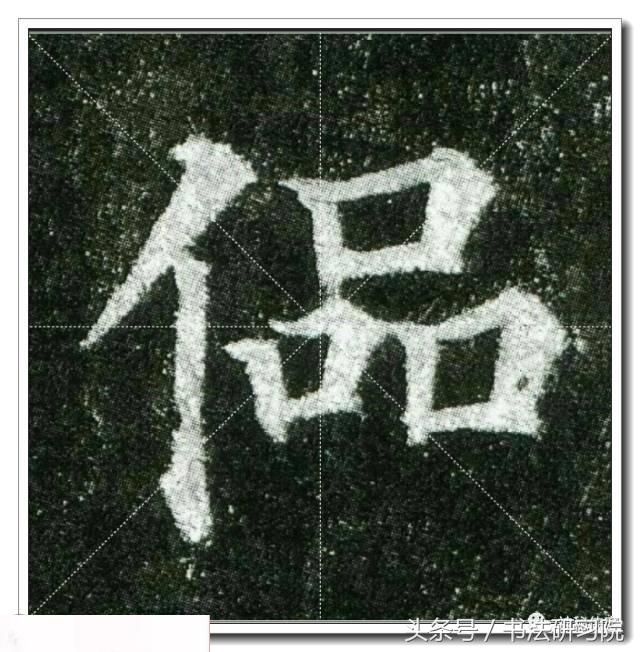 偘
头条号 / 书法研习院